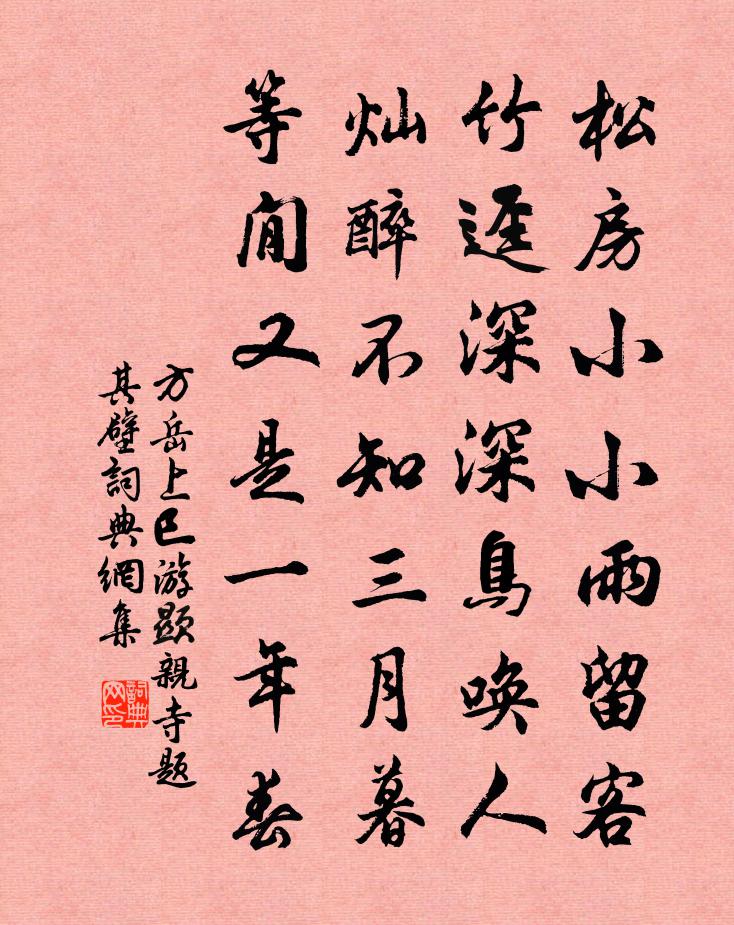 松房小小雨留客
竹迳深深鳥喚人
灿醉不知三月暮
等閒又是一年春
方岳上巳游顯親寺題
其壁詞典網集
詞典网印